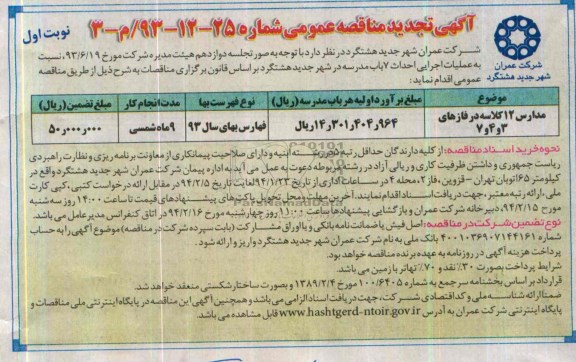 آگهی تجدید مناقصه عمومی شماره ۲۵-۱۲-۹۳/م-۳
نوبت اول
شرکت عمران
شهر جدید هشتگرد
شرکت عمران شهر جدید هشتگرد در نظر دارد با توجه به صورتجلسه دوازدهم هیئت مدیره شرکت مورخ ۹۳/۶/۱۹، نسبت
به عملیات اجرایی احداث ۷ باب مدرسه در شهر جدید هشتگرد بر اساس قانون برگزاری مناقصات به شرح ذیل از طریق مناقصه
عمومی اقدام نماید:
موضوع | مبلغ برآورد اولیه هر باب مدرسه (ریال) | نوع فهرست بها | مدت انجام کار | مبلغ تضمین (ریال)
مدارس ۱۲ کلاسه در فازهای ۳ و ۴ و ۷ | ۱۴٫۳۰۱٫۴۰۴٫۹۶۴ ریال | فهارس بهای سال ۹۳ | ۹ ماه شمسی | ۵۰٫۰۰۰٫۰۰۰
نحوه خرید اسناد مناقصه: از کلیه دارندگان حداقل رتبه پنج رشته ابنیه و دارای صلاحیت پیمانکاری از معاونت برنامه ریزی و نظارت راهبردی
ریاست جمهوری و داشتن ظرفیت کاری و ریالی آزاد در رشته مربوطه دعوت به عمل می آید به اداره پیمان شرکت عمران شهر جدید هشتگرد واقع در
کیلومتر ۶۵ اتوبان تهران - قزوین، فاز ۲، محله ۴ در ساعات اداری از تاریخ ۹۴/۱/۲۳ لغایت تاریخ ۹۴/۲/۵ در مقابل ارائه درخواست کتبی، کپی کارت
ملی، ارائه رتبه معتبر، جهت دریافت اسناد اقدام نمایند. آخرین مهلت و محل تحویل پاکت های پیشنهادهای قیمت تا ساعت ۱۴:۰۰ روز سه شنبه
مورخ ۹۴/۲/۱۵، دبیرخانه شرکت عمران و بازگشایی پیشنهادها ساعت ۱۱:۰۰ روز چهارشنبه مورخ ۹۴/۲/۱۶ در اتاق کنفرانس مدیرعامل می باشد.
نوع تضمین شرکت در مناقصه: اصل فیش یا ضمانت نامه بانکی و یا اوراق مشارکت (بابت سپرده شرکت در مناقصه) موضوع آگهی را به حساب
شماره ۴۰۰۱۰۳۶۹۰۷۱۴۴۱۶۱ بانک ملی به نام شرکت عمران شهر جدید هشتگرد واریز و ارائه شود.
پرداخت هزینه آگهی در روزنامه به عهده برنده مناقصه خواهد بود.
شرایط پرداخت بصورت ۳۰٪ نقد و ۷۰٪ تهاتر با زمین می باشد.
قرارداد بر اساس بخشنامه سرجمع به شماره ۱۰۰/۶۴۰۵ مورخ ۱۳۸۹/۲/۴ و بصورت ساختار شکستی منعقد خواهد شد.
ضمنا ارائه شناسه ملی و کد اقتصادی شرکت، جهت دریافت اسناد الزامی می باشد و همچنین آگهی این مناقصه در پایگاه اینترنتی ملی مناقصات و
پایگاه اینترنتی شرکت عمران به آدرس www.hashtgerd-ntoir.gov.ir قابل مشاهده می باشد.